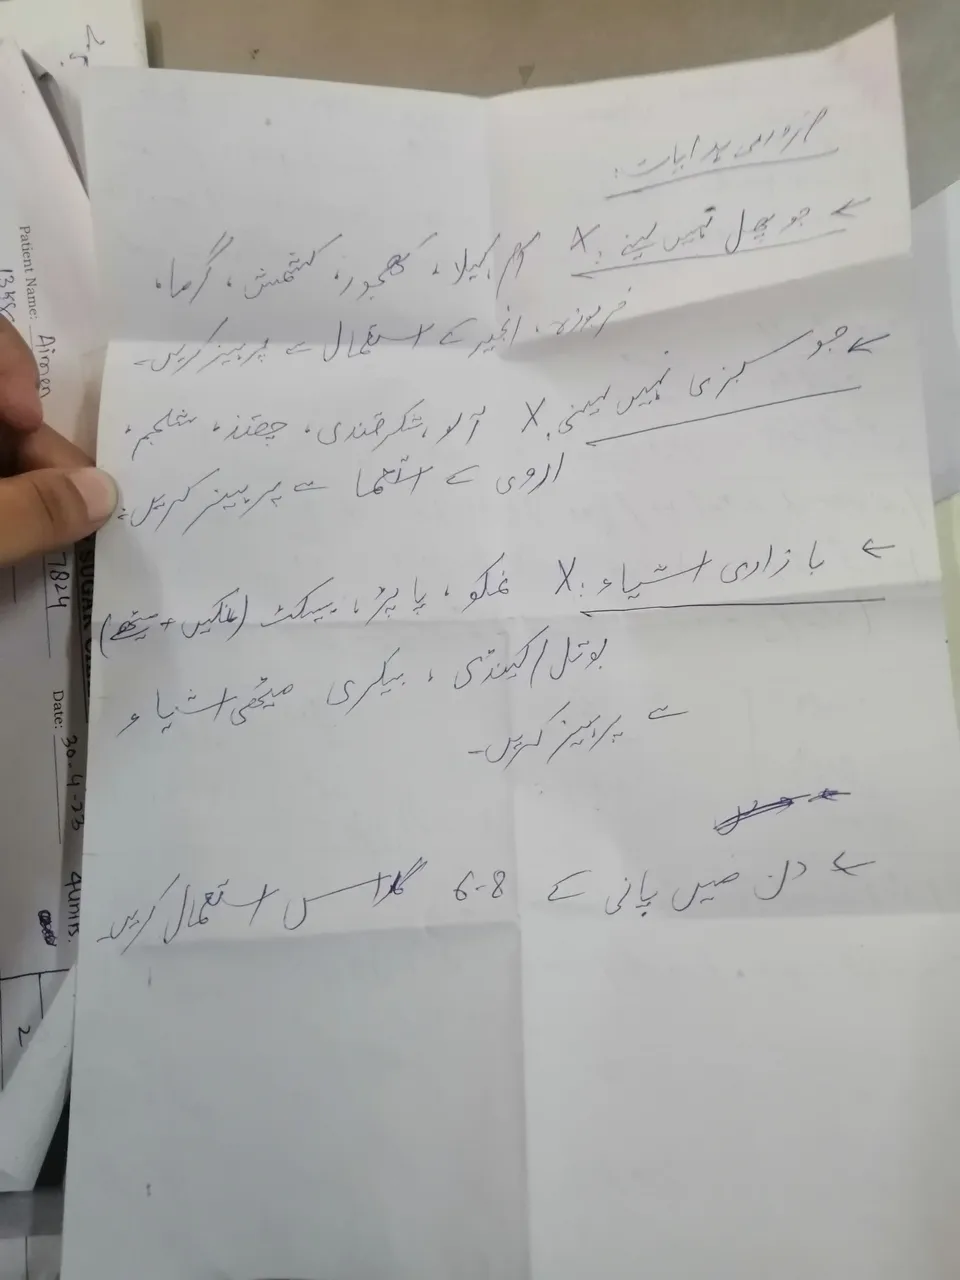 ضروری ہدایات:
← جو پھل نہیں لینے: X آم، کیلا، کھجور، کشمش، گرما،
خربوزہ، انجیر کے استعمال سے پرہیز کریں۔
← جو سبزی نہیں لینی: X آلو، شکرقندی، چقندر، شلجم،
اروی کے استعما سے پرہیز کریں۔
← بازاری اشیاء: X نمکو، پاپڑ، بسکٹ (نمکین + میٹھے)
بوتل/کینڈی، بیکری میٹھی اشیاء
سے پرہیز کریں۔
← دن میں پانی کے 6-8 گلاس استعمال کریں۔
Patient Name: Aimen
7824
SUGAR
Date: 30-4-23
4 units.
2